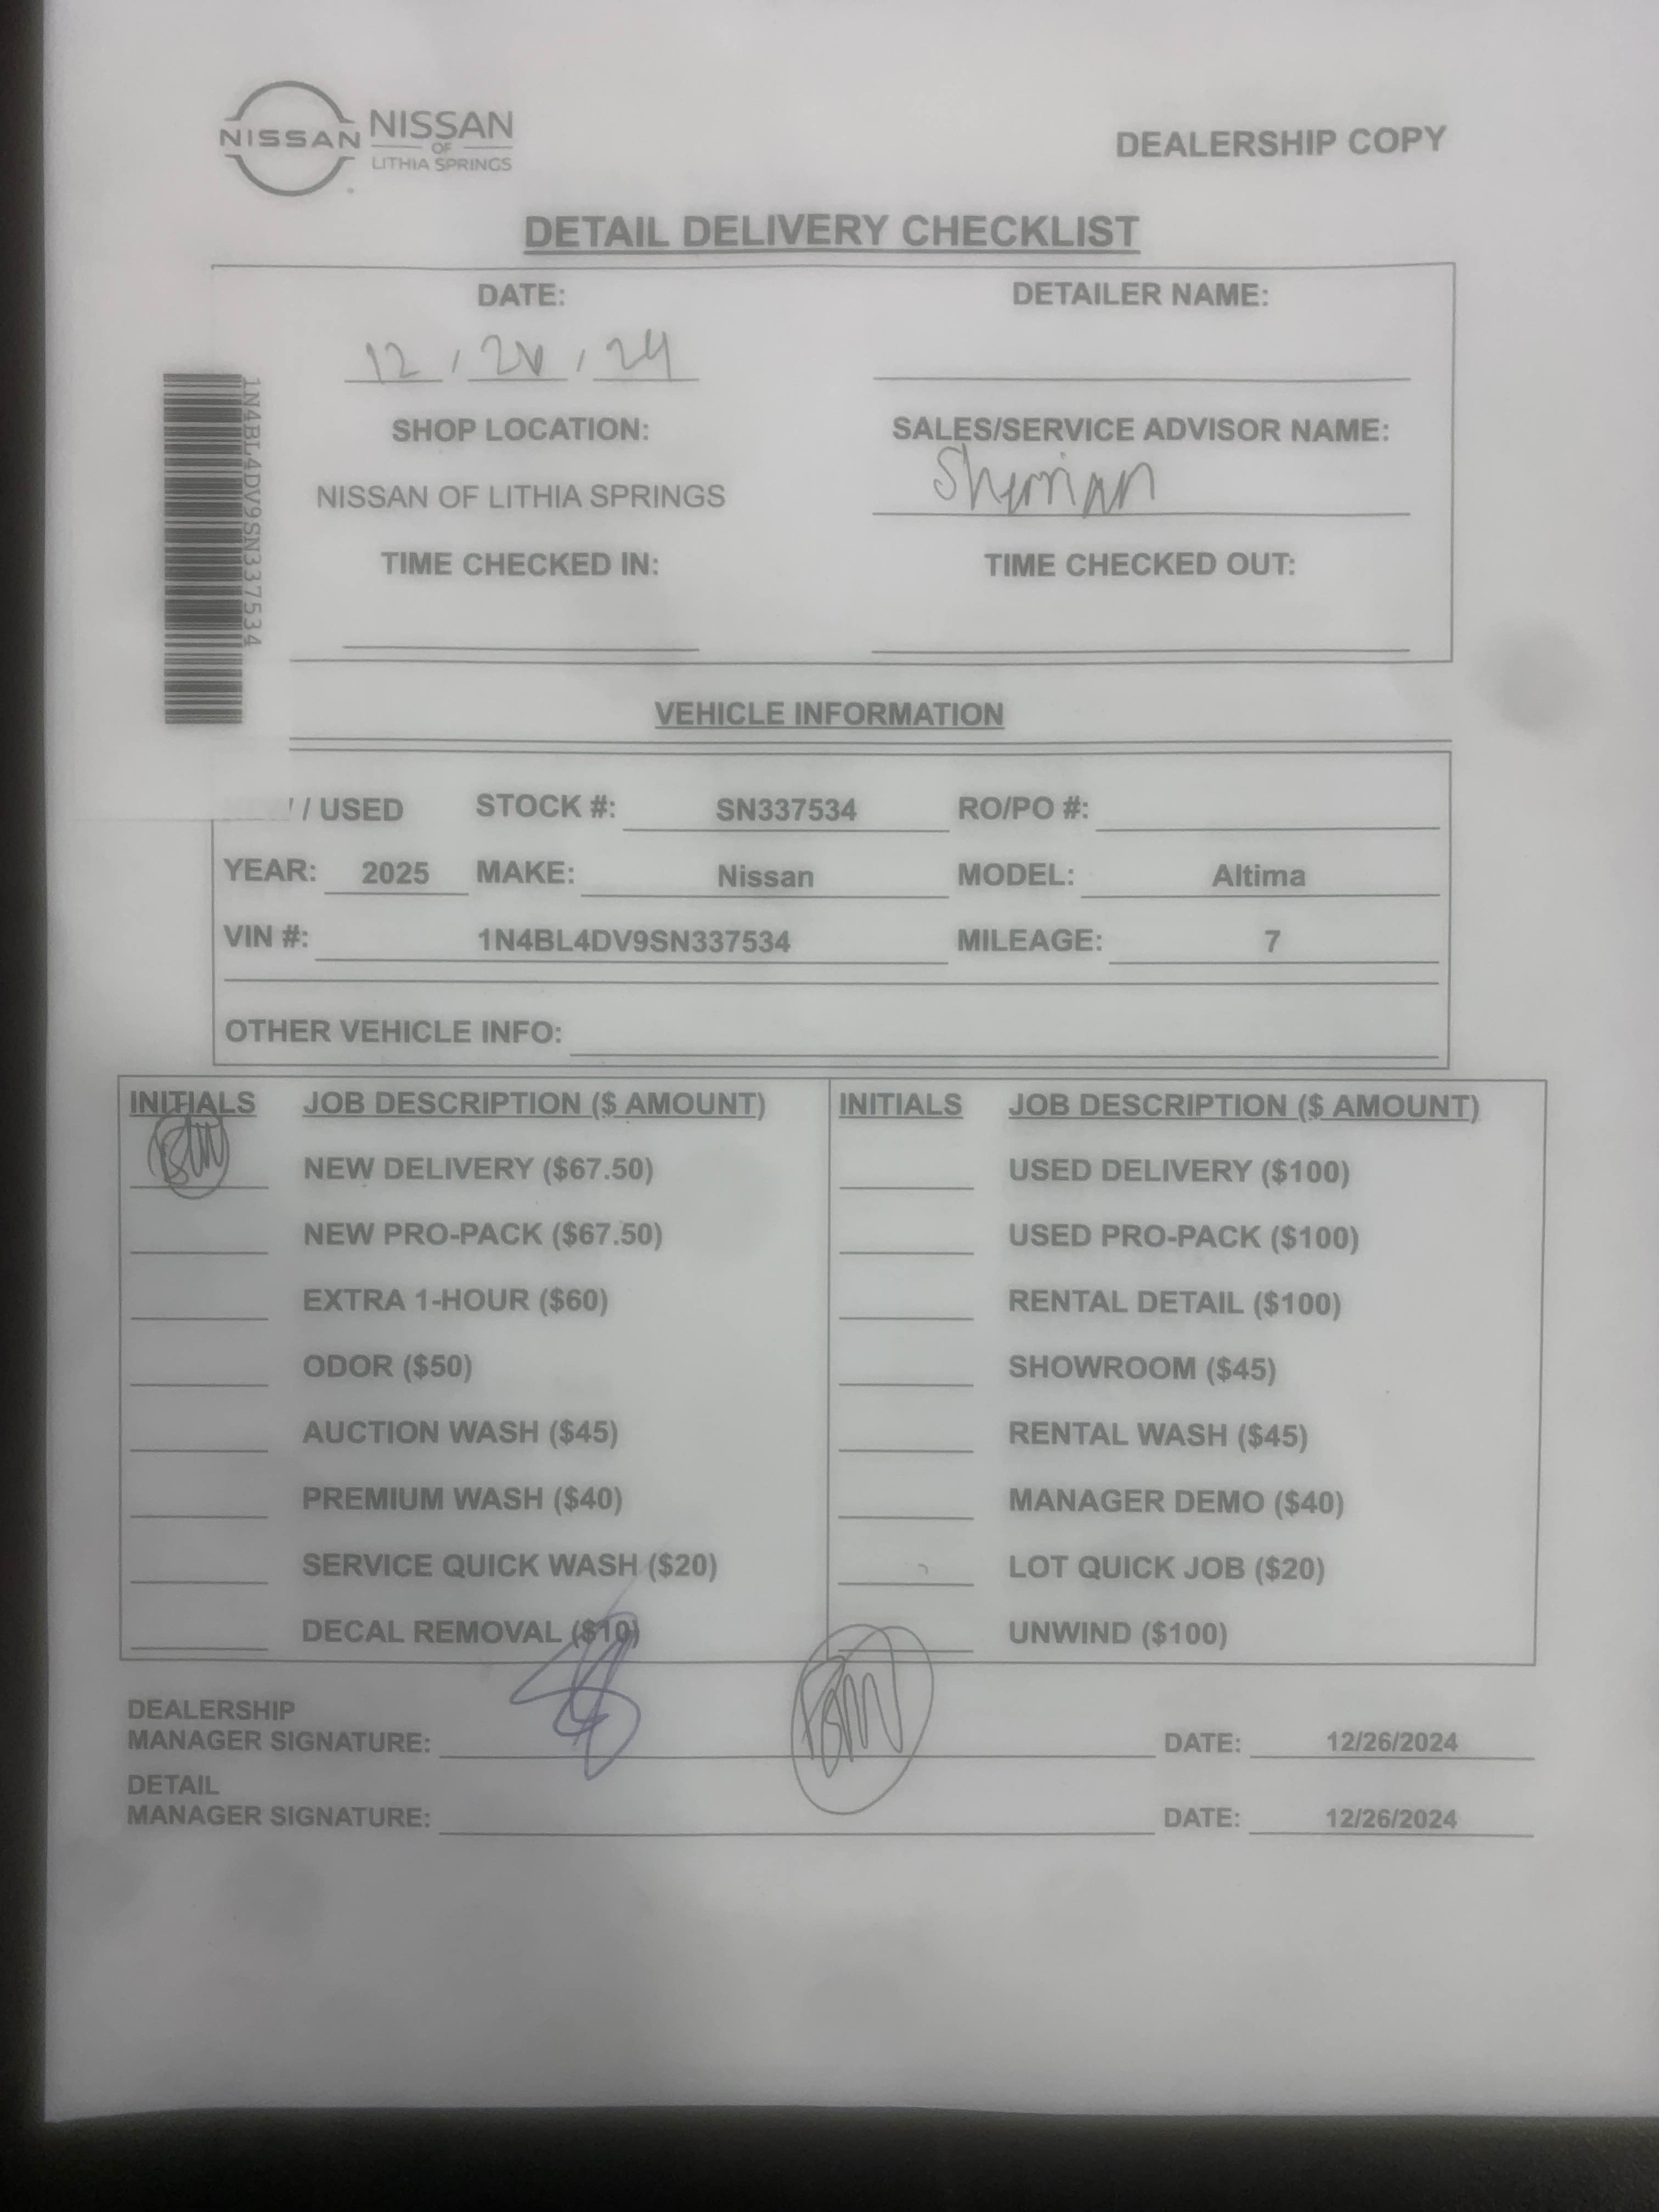 NISSAN
NISSAN
OF
LITHIA SPRINGS
DEALERSHIP COPY
DETAIL DELIVERY CHECKLIST
DATE: DETAILER NAME:
12 / / 24
SHOP LOCATION: SALES/SERVICE ADVISOR NAME:
NISSAN OF LITHIA SPRINGS
TIME CHECKED IN: TIME CHECKED OUT:
1N4BL4DV9SN337534
VEHICLE INFORMATION
/ USED STOCK #: SN337534 RO/PO #:
YEAR: 2025 MAKE: Nissan MODEL: Altima
VIN #: 1N4BL4DV9SN337534 MILEAGE: 7
OTHER VEHICLE INFO:
INITIALS JOB DESCRIPTION ($ AMOUNT) INITIALS JOB DESCRIPTION ($ AMOUNT)
NEW DELIVERY ($67.50) USED DELIVERY ($100)
NEW PRO-PACK ($67.50) USED PRO-PACK ($100)
EXTRA 1-HOUR ($60) RENTAL DETAIL ($100)
ODOR ($50) SHOWROOM ($45)
AUCTION WASH ($45) RENTAL WASH ($45)
PREMIUM WASH ($40) MANAGER DEMO ($40)
SERVICE QUICK WASH ($20) LOT QUICK JOB ($20)
DECAL REMOVAL ($10) UNWIND ($100)
DEALERSHIP
MANAGER SIGNATURE: DATE: 12/26/2024
DETAIL
MANAGER SIGNATURE: DATE: 12/26/2024